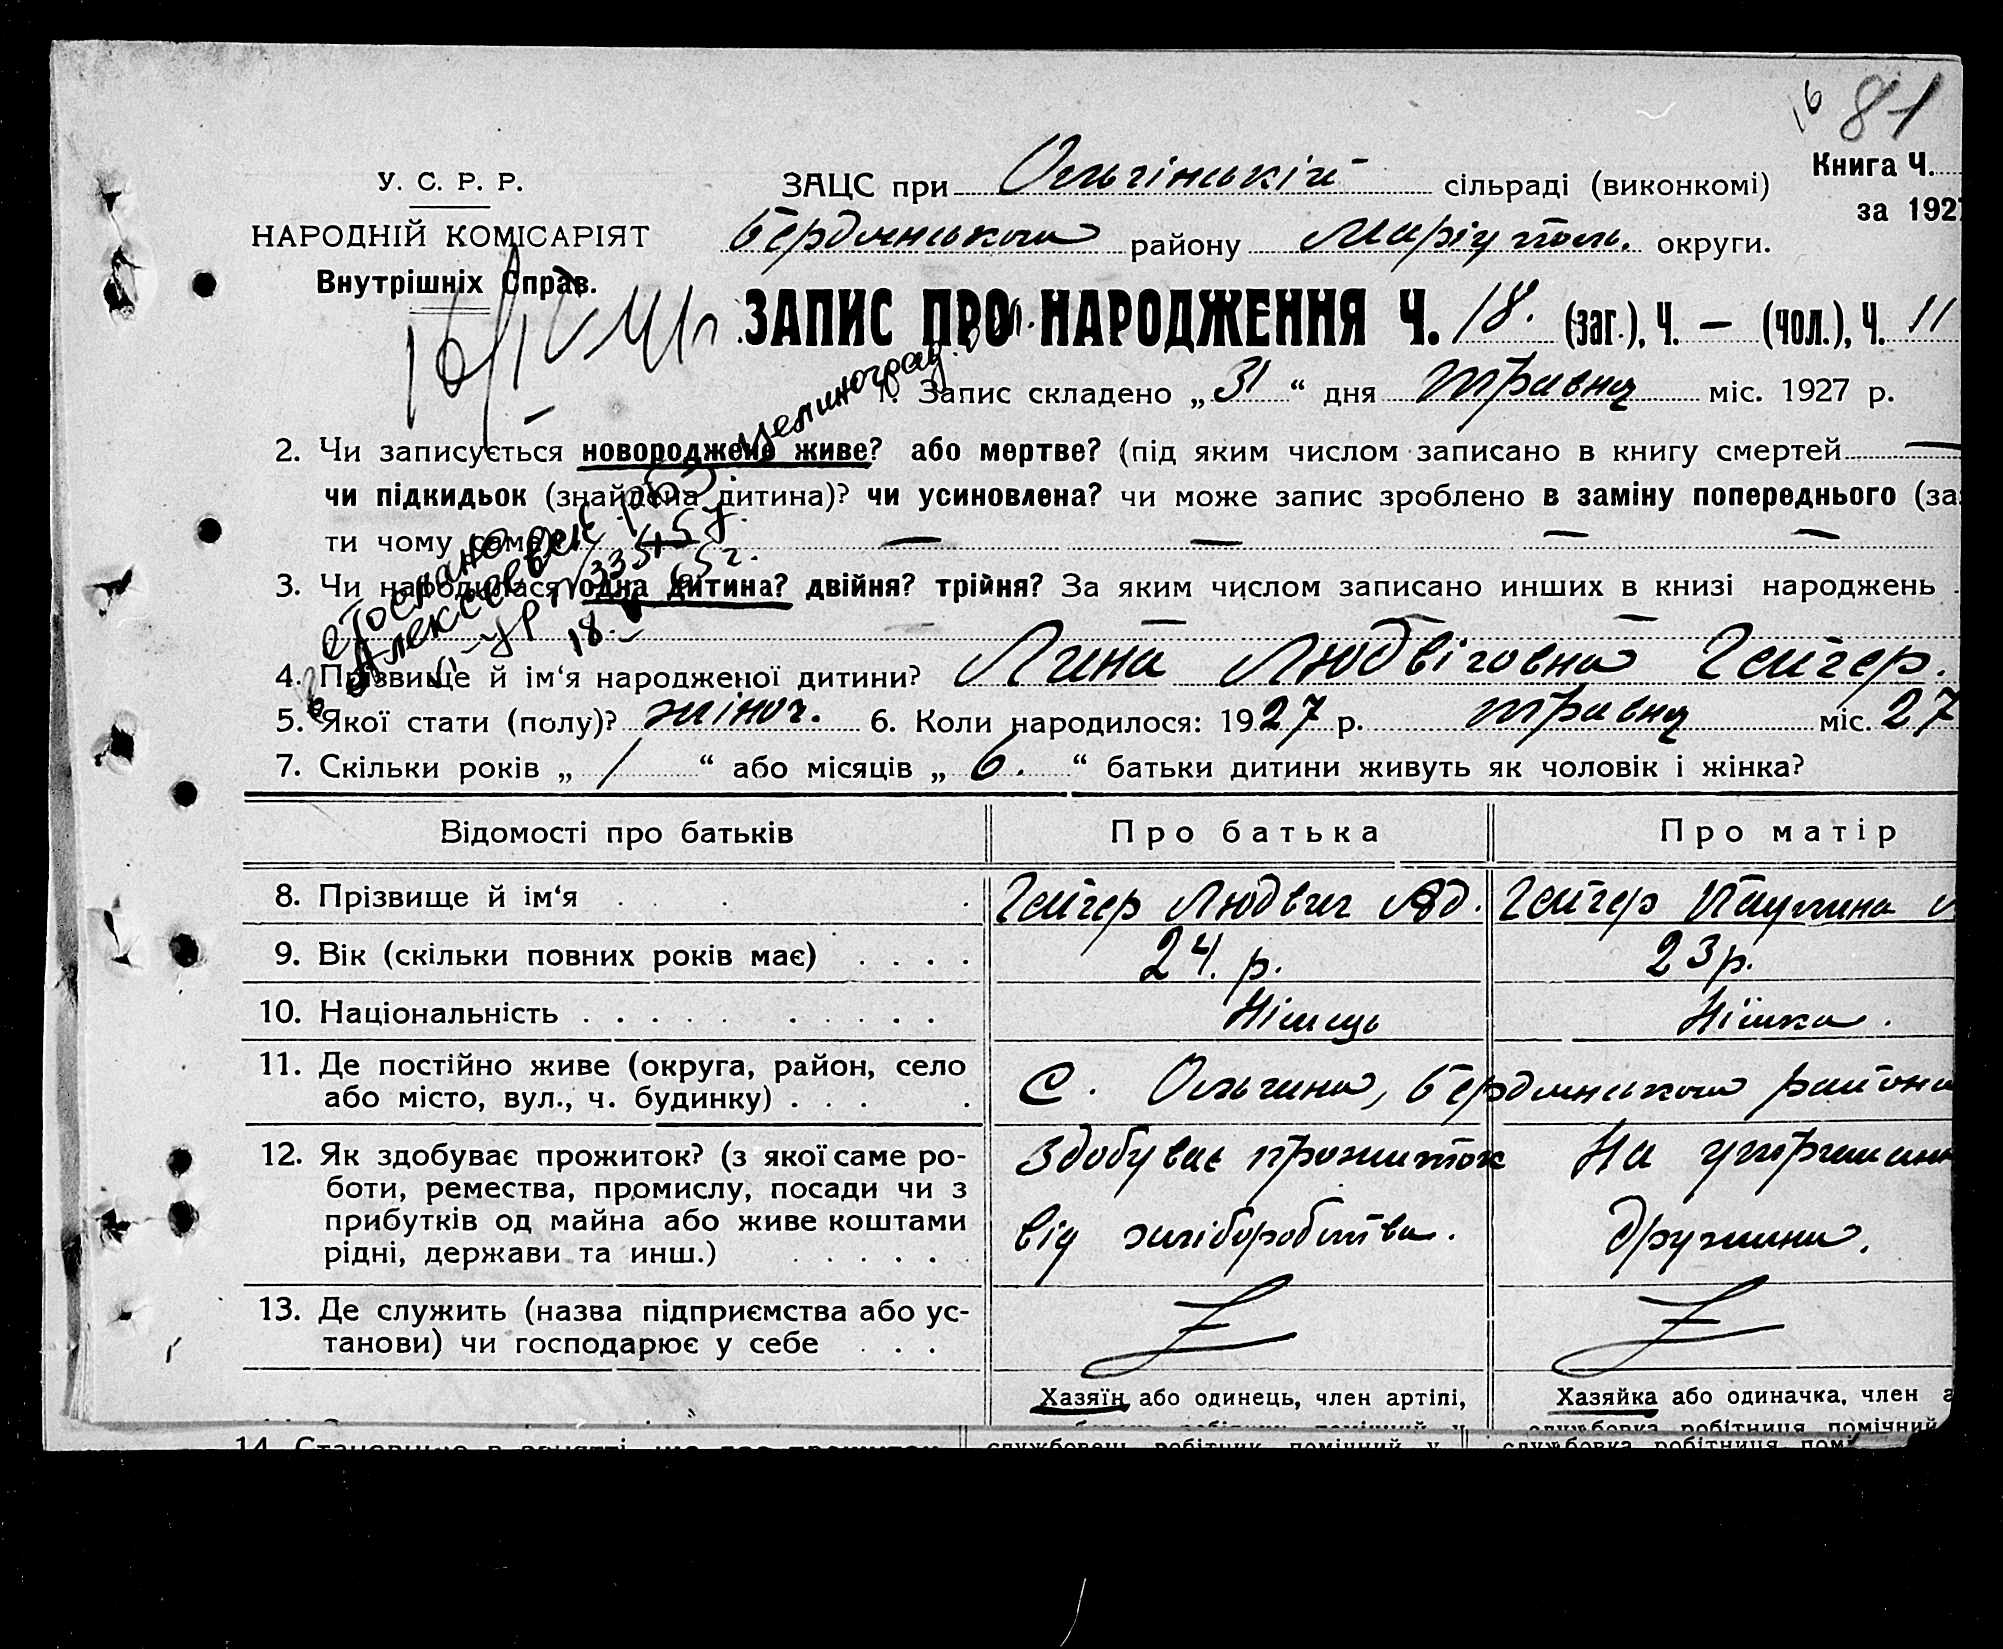 16 81
У. С. Р. Р.
НАРОДНІЙ КОМІСАРІЯТ
Внутрішніх Справ.
ЗАЦС при Ольгінській сільраді (виконкомі)
Книга Ч.
за 1927
Бердянського району Маріуполь. округи.
ЗАПИС ПРО НАРОДЖЕННЯ Ч. 18. (заг.), Ч. — (чол.), Ч. 11
1. Запис складено „ 31 “ дня травня міс. 1927 р.
2. Чи записується новороджене живе? або мертве? (під яким числом записано в книгу смертей —
чи підкидьок (знайдена дитина)? чи усиновлена? чи може запис зроблено в заміну попереднього (за
ти чому саме) — — — —
3. Чи народилася одна дитина? двійня? трійня? За яким числом записано инших в книзі народжень
4. Прізвище й ім‘я народженої дитини? Лина Людвіговна Гейгер.
5. Якої стати (полу)? жіноч. 6. Коли народилося: 1927 р. травня міс. 27
7. Скільки років „ 1 “ або місяців „ 6. “ батьки дитини живуть як чоловік і жінка?
Відомості про батьків Про батька Про матір
8. Прізвище й ім‘я . . . Гейгер Людвиг Ад. Гейгер Паулина
9. Вік (скільки повних років має) . . . . 24. р. 23 р.
10. Національність . . . . . . . . . . Німець Німка.
11. Де постійно живе (округа, район, село
або місто, вул., ч. будинку) . . . . с. Ольгино, Бердянського района
12. Як здобуває прожиток? (з якої саме ро-
боти, ремества, промислу, посади чи з
прибутків од майна або живе коштами
рідні, держави та инш.) . . . . . .
Здобуває прожиток На
від хліборобства. дружини.
13. Де служить (назва підприємства або ус-
танови) чи господарює у себе . . .
Хазяїн або одинець, член артілі, Хазяйка або одиначка, член
службовка робітниця помічний
14. Становище в занятті, що дає прожиток службовець робітник помічний у службовка робітниця помі
Целиноград.
18.V 65 г.